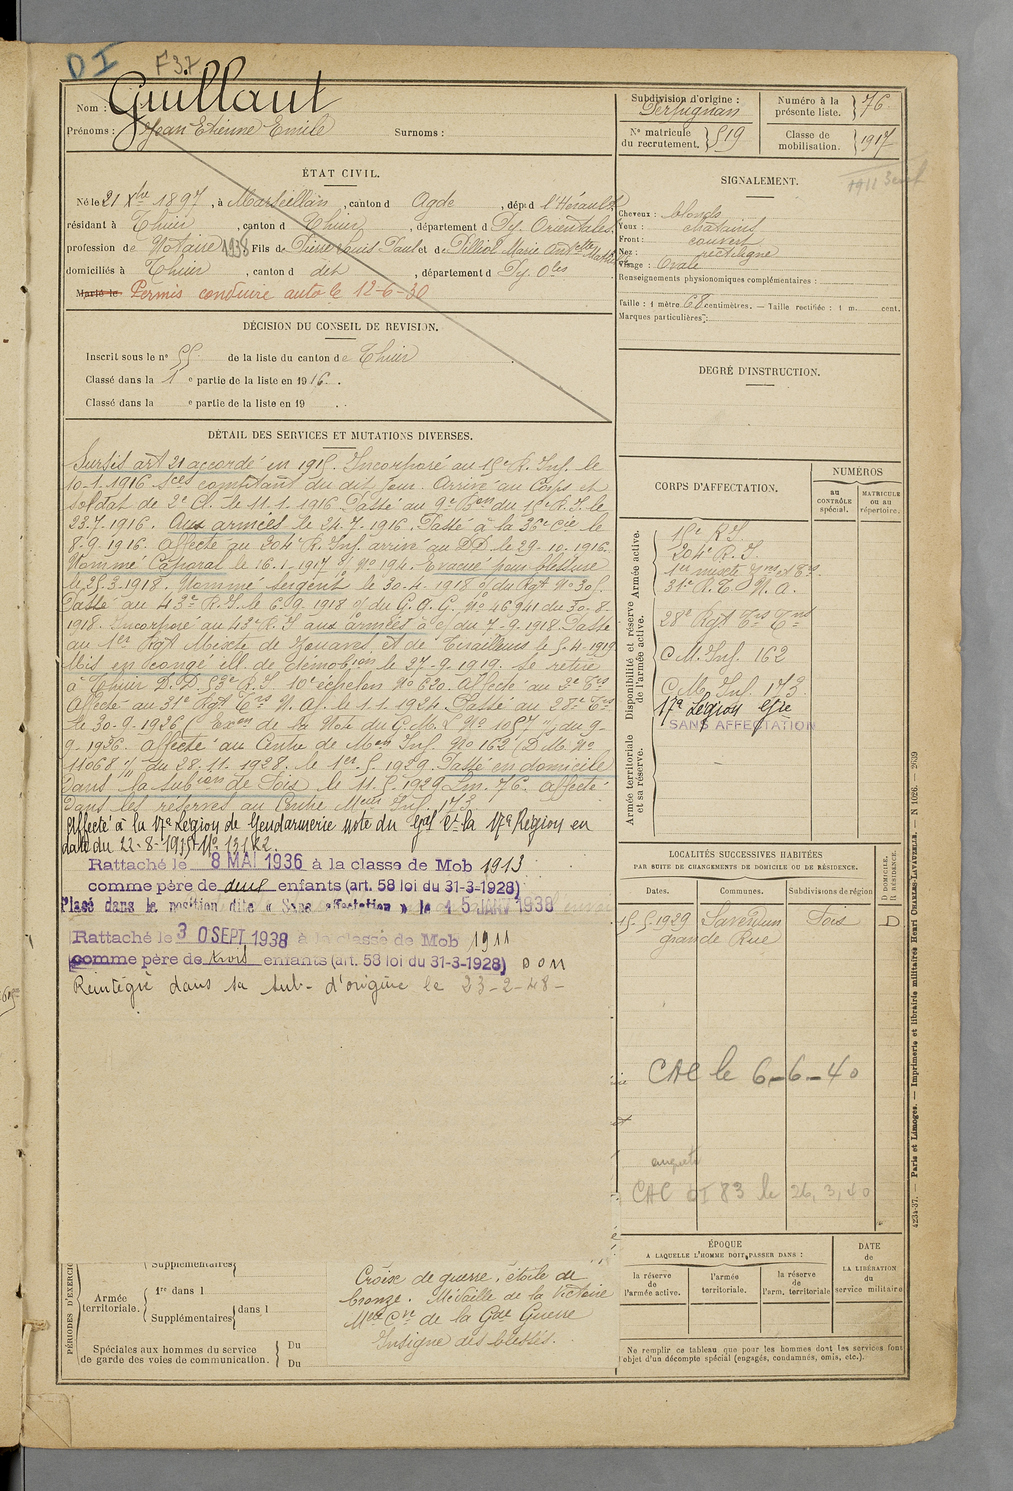 D I
F 37
Nom : Guillaut
Prénoms : Jean Etienne Emile Surnoms :
Subdivision d'origine : Perpignan
Numéro à la présente liste. 76
N° matricule du recrutement. 519
Classe de mobilisation. 1917
1911
ÉTAT CIVIL.
Né le 21 Xbre 1897, à Marseillan, canton d Agde, dépt d l'Hérault
résidant à Thuir, canton d Thuir, département d Py. Orientales,
profession de Notaire 1938 Fils de Pierre Louis Paul et de Pelliot Marie
domiciliés à Thuir, canton d dit, département d Py. Oles
Marié le Permis conduire auto le 12-6-30
SIGNALEMENT.
Cheveux : blonds
Yeux : chatains
Front : couvert
Nez : rectiligne
Visage : Ovale
Renseignements physionomiques complémentaires :
Taille : 1 mètre 68 centimètres. — Taille rectifiée : 1 m. cent.
Marques particulières :
DÉCISION DU CONSEIL DE REVISION.
Inscrit sous le n° 55 de la liste du canton de Thuir
Classé dans la 1 e partie de la liste en 1916.
Classé dans la e partie de la liste en 19
DEGRÉ D'INSTRUCTION.
DÉTAIL DES SERVICES ET MUTATIONS DIVERSES.
Sursis art 21 accordé en 1915. Incorporé au 15e R. Inf. le
10-1-1916. Sces comptant du dit jour. Arrivé au Corps et
soldat de 2e Cl. le 11-1-1916. Passé au 9e Bon du 15e R.I. le
23.7.1916. Aux armées le 24.7.1916. Passé à la 36e Cie le
8-9-1916. Affecté au 304e R. Inf. arrivé au D.D. le 29-10-1916.
Nommé Caporal le 16-1-1917 N° 194. Evacué pour blessure
le 25-3-1918. Nommé sergent le 30-4-1918 du Rgt N° 305.
Passé au 43e R.I. le 6-9-1918 du G.Q.G. N° 46941 du 30-8-
1918. Incorporé au 43e R.I aux armées à c/ du 7-9-1918. Passé
au 1er Rgt Mixte de Zouaves et de Tirailleurs le 5-4-1919.
Mis en congé ill. de démobion le 27-9-1919. Se retire
à Thuir D.D. 53e R.I. 10e échelon N° 620. Affecté au
Affecté au 31e Rgt Trs N. Af. le 1-1-1924. Passé au 28e Trs
le 30-9-1926 (Exon de la Note du G.M.P. N° 1057 du 9-
9-1926. Affecté au Centre de Mon Inf. N° 162 (D.M. N°
11068 du 28-11-1928. le 1er-5-1929. Passé en domicile
dans la subion de Foix le 11-5-1929 Lm. 76. Affecté
dans les réserves au Centre Mon Inf. 173.
Affecté à la 17e Légion de Gendarmerie note du Gal Ct la 17e Région en
date du 22-8-1935
Rattaché le 8 MAI 1936 à la classe de Mob 1913
comme père de deux enfants (art. 58 loi du 31-3-1928)
Placé dans la position dite « Sans affectation » le 15 JANV 1938
Rattaché le 30 SEPT 1938 à la classe de Mob 1911
comme père de trois enfants (art. 58 loi du 31-3-1928)
Réintégré dans sa sub- d'origine le 23-2-48-
CORPS D'AFFECTATION.
NUMÉROS
au CONTRÔLE spécial.
MATRICULE ou au répertoire.
Armée active.
15e R.I.
304e R.I.
1er mixte
31e R.T. N.A.
Disponibilité et réserve de l'armée active.
28e Rgt Trs
C.M. Inf. 162
C.M. Inf. 173
17e Légion
SANS AFFECTATION
Armée territoriale et sa réserve.
LOCALITÉS SUCCESSIVES HABITÉES
PAR SUITE DE CHANGEMENTS DE DOMICILE OU DE RÉSIDENCE.
Dates. Communes. Subdivisions de région
D. DOMICILE. R. RÉSIDENCE.
15-5-1929 Saverdun Foix D
grande Rue
CAC le 6-6-40
CAC 83 le 26,3,40
ÉPOQUE
A LAQUELLE L'HOMME DOIT PASSER DANS :
la réserve de l'armée active.
l'armée territoriale.
la réserve de l'arm. territoriale
DATE de LA LIBÉRATION du service militaire
Ne remplir ce tableau que pour les hommes dont les services font
l'objet d'un décompte spécial (engagés, condamnés, omis, etc.).
PÉRIODES D'EXERCIC
Supplémentaires
Armée territoriale.
1re dans l
Supplémentaires dans l
Spéciales aux hommes du service
de garde des voies de communication.
Du
Du
Croix de guerre, étoile de
bronze. Médaille de la Victoire
Mlle Cve de la Gde Guerre
Insigne des blessés.
4234-37. — Paris et Limoges. — Imprimerie et librairie militaires Henri CHARLES-LAVAUZELLE. — N 1026. — 2639